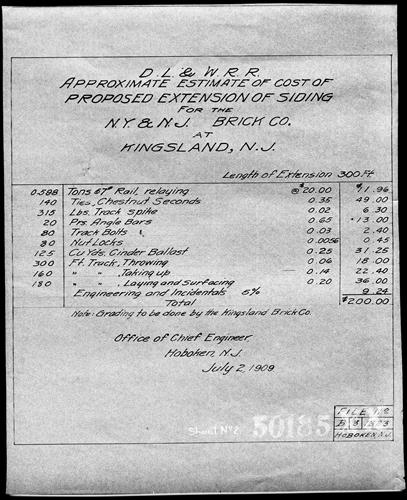 D. L. & W. R. R.
APPROXIMATE ESTIMATE OF COST OF
PROPOSED EXTENSION OF SIDING
FOR THE
N.Y. & N.J. BRICK CO.
AT
KINGSLAND, N.J.
Length of Extension 300 Ft
0.598 Tons 67# Rail, relaying @ 20.00 $11.96
140 Ties, Chestnut Seconds 0.35 49.00
315 Lbs. Track spike 0.02 6.30
20 Prs. Angle Bars 0.65 13.00
80 Track Bolts 0.03 2.40
80 Nut Locks 0.0056 0.45
125 Cu Yds. Cinder Ballast 0.25 31.25
300 Ft. Track, Throwing 0.06 18.00
160 " " Taking up 0.14 22.40
180 " " Laying and Surfacing 0.20 36.00
Engineering and Incidentals 5% 9.24
Total $200.00
Note: Grading to be done by the Kingsland Brick Co.
Office of Chief Engineer,
Hoboken, N.J.
July 2, 1909
Sheet No 2
50185
FILE No
B 3
HOBOKEN N.J.